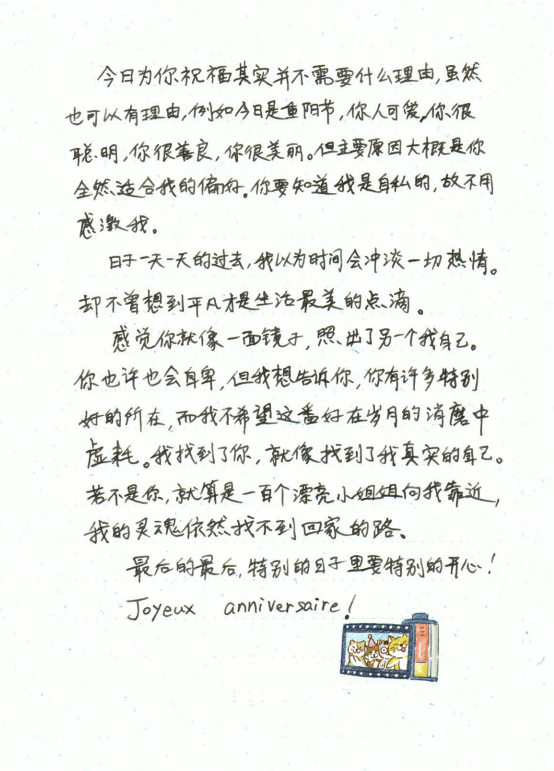 今日为你祝福其实并不需要什么理由,虽然
也可以有理由,例如今日是重阳节,你人可爱,你很
聪明,你很善良,你很美丽。但主要原因大概是你
全然适合我的偏好。你要知道我是自私的,故不用
感激我。
日子一天一天的过去,我以为时间会冲淡一切热情。
却不曾想到平凡才是生活最美的点滴。
感觉你就像一面镜子,照出了另一个我自己。
你也许也会自卑,但我想告诉你,你有许多特别
好的所在,而我不希望这番好在岁月的消磨中
虚耗。我找到了你,就像找到了我真实的自己。
若不是你,就算是一百个漂亮小姐姐向我靠近,
我的灵魂依然找不到回家的路。
最后的最后,特别的日子里要特别的开心!
Joyeux anniversaire!